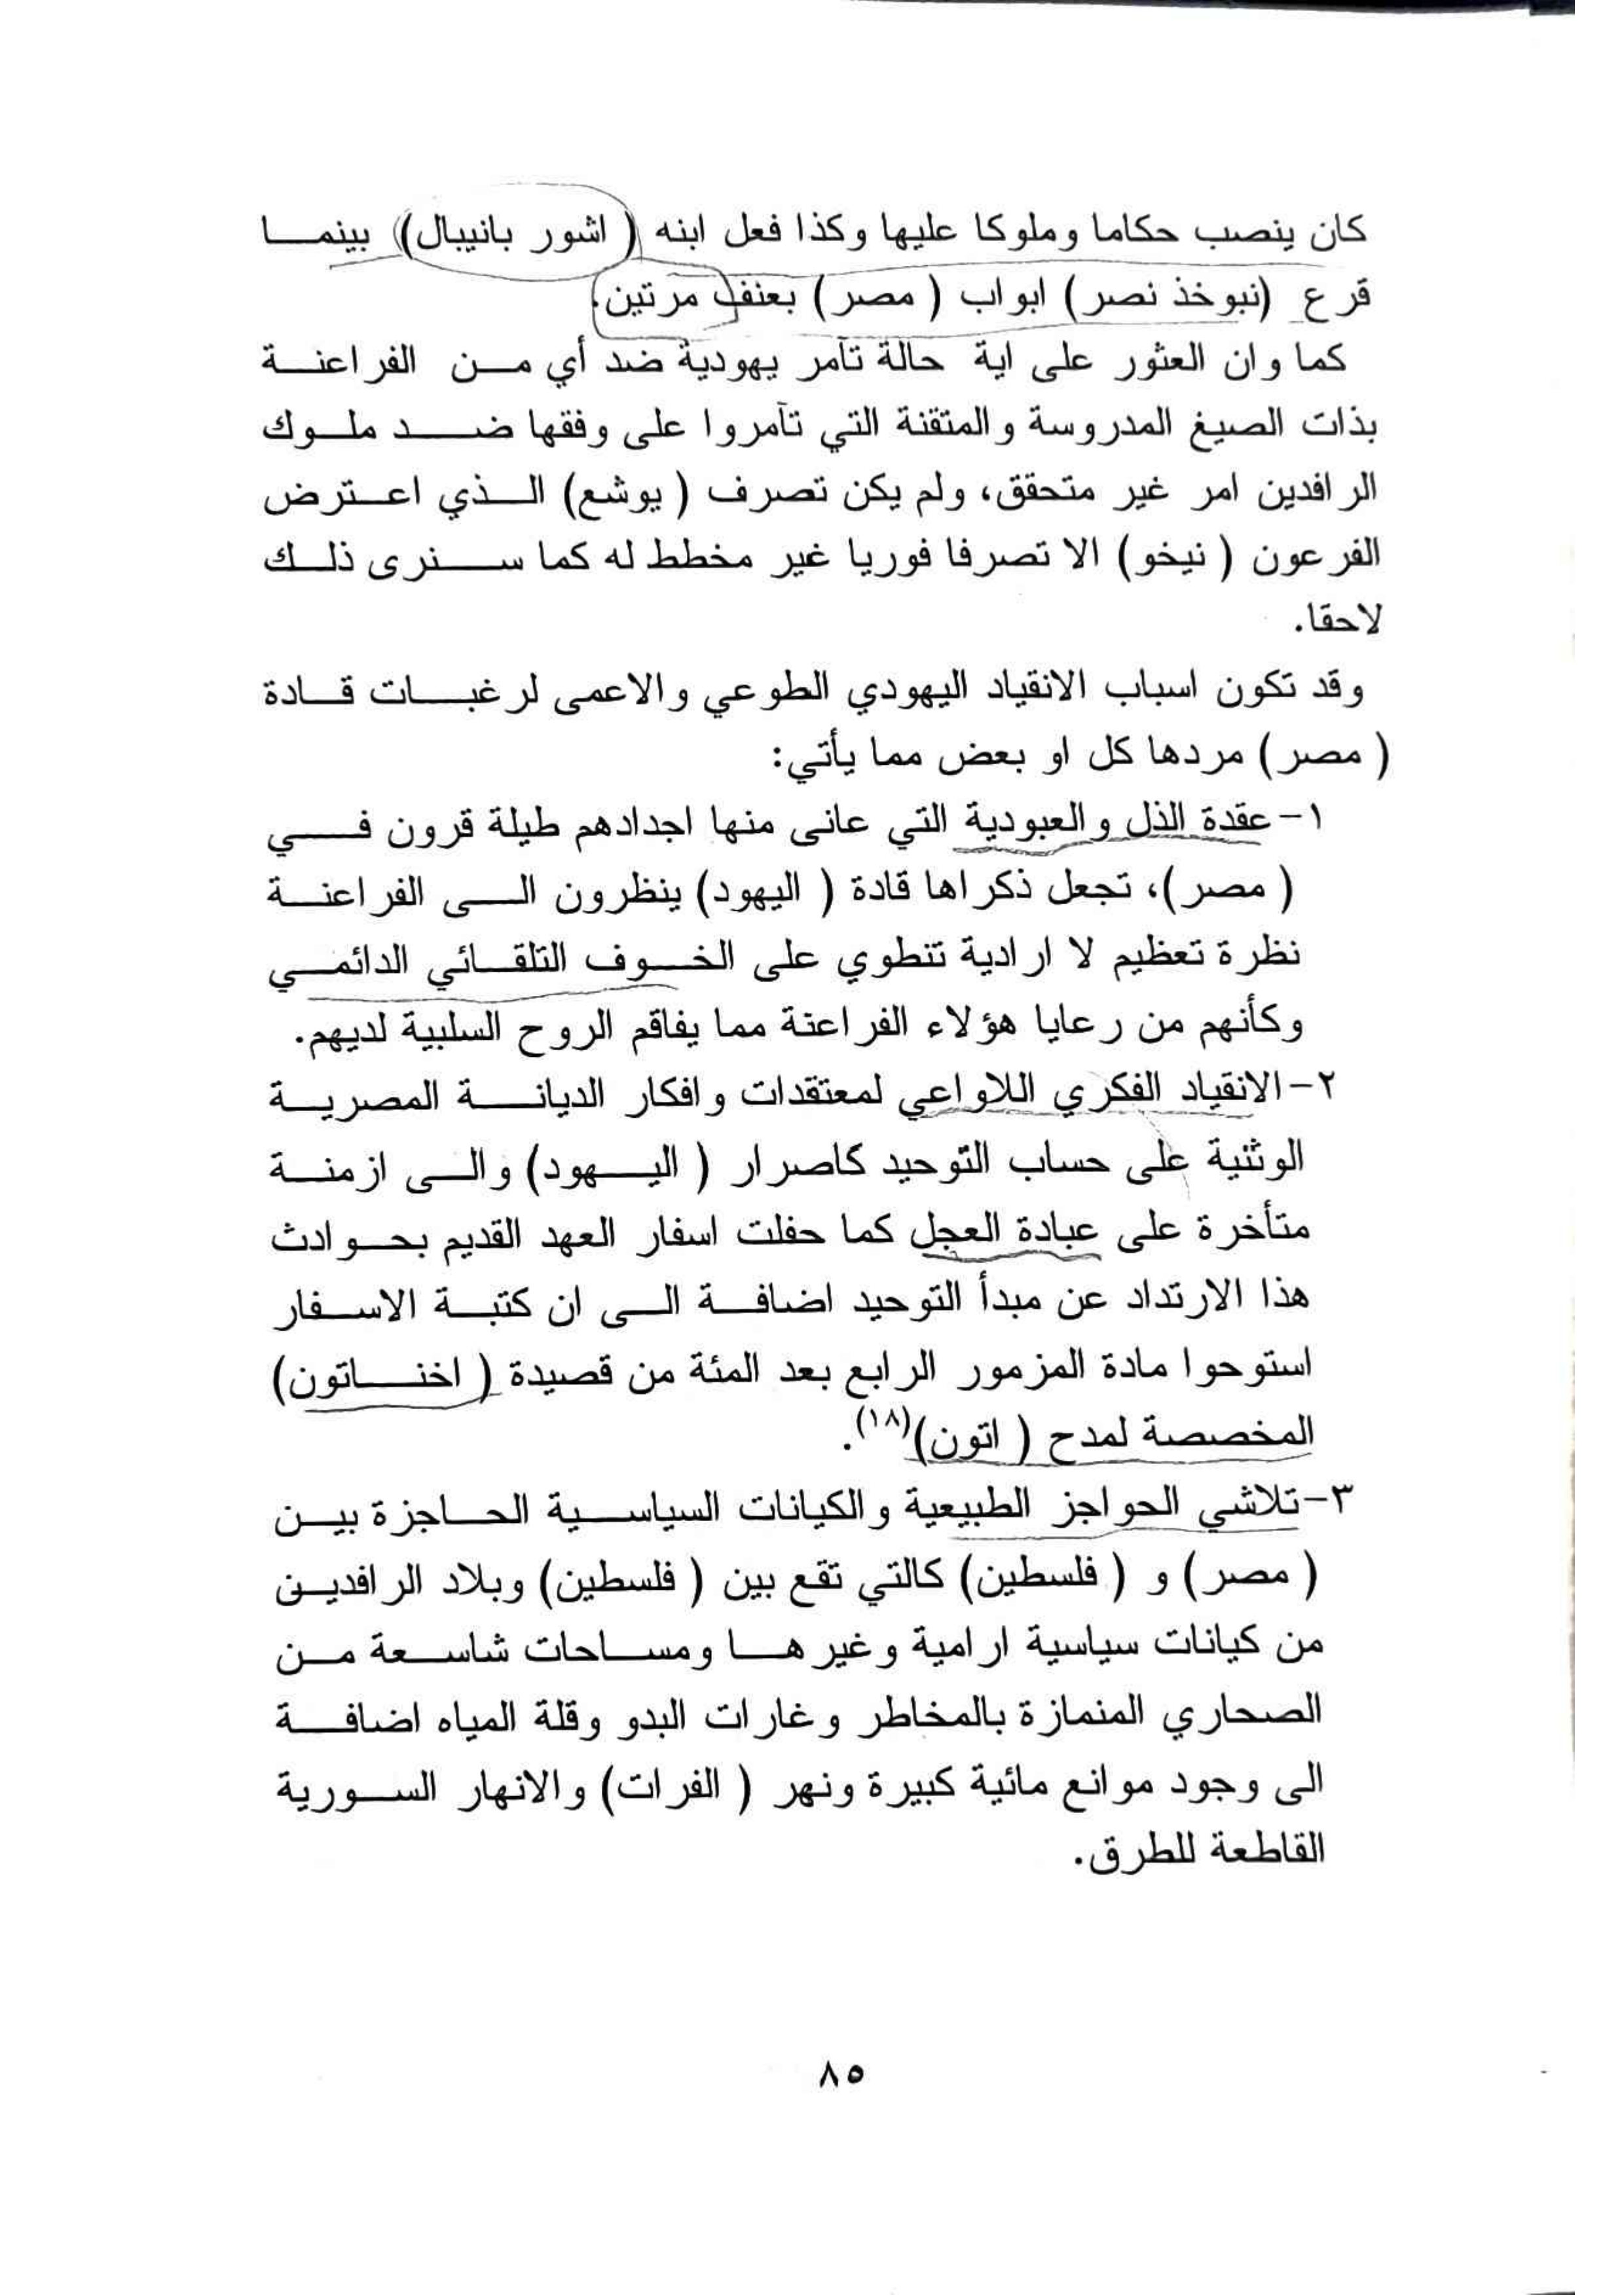 كان ينصب حكاما وملوكا عليها وكذا فعل ابنه ( اشور بانيبال) بينما
قرع (نبوخذ نصر) ابواب ( مصر) بعنف مرتين.
كما وان العثور على اية حالة تآمر يهودية ضد أي من الفراعنة
بذات الصيغ المدروسة والمتقنة التي تآمروا على وفقها ضد ملوك
الرافدين امر غير متحقق، ولم يكن تصرف ( يوشع) الذي اعترض
الفرعون ( نيخو) الا تصرفا فوريا غير مخطط له كما سنرى ذلك
لاحقا.
وقد تكون اسباب الانقياد اليهودي الطوعي والاعمى لرغبات قادة
( مصر) مردها كل او بعض مما يأتي:
١- عقدة الذل والعبودية التي عانى منها اجدادهم طيلة قرون في
( مصر)، تجعل ذكراها قادة ( اليهود) ينظرون الى الفراعنة
نظرة تعظيم لا ارادية تنطوي على الخوف التلقائي الدائمي
وكأنهم من رعايا هؤلاء الفراعنة مما يفاقم الروح السلبية لديهم.
٢- الانقياد الفكري اللاواعي لمعتقدات وافكار الديانة المصرية
الوثنية على حساب التوحيد كاصرار ( اليهود) والى ازمنة
متأخرة على عبادة العجل كما حفلت اسفار العهد القديم بحوادث
هذا الارتداد عن مبدأ التوحيد اضافة الى ان كتبة الاسفار
استوحوا مادة المزمور الرابع بعد المئة من قصيدة ( اخناتون)
المخصصة لمدح ( اتون)(١٨).
٣- تلاشي الحواجز الطبيعية والكيانات السياسية الحاجزة بين
( مصر) و ( فلسطين) كالتي تقع بين ( فلسطين) وبلاد الرافدين
من كيانات سياسية ارامية وغيرها ومساحات شاسعة من
الصحاري المنمازة بالمخاطر وغارات البدو وقلة المياه اضافة
الى وجود موانع مائية كبيرة ونهر ( الفرات) والانهار السورية
القاطعة للطرق.
٨٥